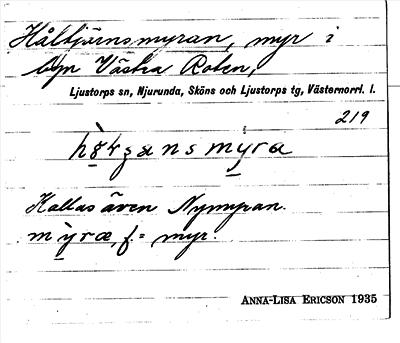 Håltjärnsmyran, myr i
byn Västra Roten,
Ljustorps sn, Njurunda, Sköns och Ljustorps tg, Västernorrl. l.
219
Kallas även Nymyran.
myræ, f. = myr.
ANNA-LISA ERICSON 1935